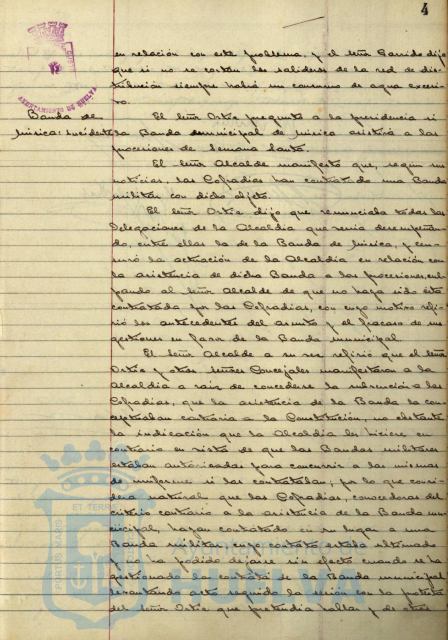 4
AYUNTAMIENTO DE HUELVA
en relación con este problema, y el señor Garrido dijo
que si no se cortan los salideros de la red de dis-
tribución siempre habrá un consumo de agua excesi-
vo.
Banda de
Música: incidente
El señor Ortiz preguntó a la presidencia si
la Banda municipal de música asistirá a las
procesiones de Semana Santa.
El señor Alcalde manifestó que, según sus
noticias, las Cofradías han contratado una Banda
militar con dicho objeto.
El señor Ortiz dijo que renunciaba todas las
Delegaciones de la Alcaldía que venía desempeñan-
do, entre ellas la de la Banda de música, y cen-
suró la actuación de la Alcaldía en relación con
la asistencia de dicha Banda a las procesiones, cul-
pando al señor Alcalde de que no haya sido ésta
contratada por las Cofradías, con cuyo motivo refi-
rió los antecedentes del asunto y el fracaso de sus
gestiones en favor de la Banda municipal.
El señor Alcalde a su vez refirió que el señor
Ortiz y otros señores Concejales manifestaron a la
Alcaldía a raíz de concederse la subvención a las
Cofradías, que la asistencia de la Banda la con-
ceptuaban contraria a la Constitución, no obstante
la indicación que la Alcaldía les hiciera en
contrario en vista de que las Bandas militares
estaban autorizadas para concurrir a las mismas
de uniforme si las contrataban; por lo que consi-
dera natural que las Cofradías, conocedoras del
criterio contrario a la asistencia de la Banda mu-
nicipal, hayan contratado en su lugar a una
Banda militar cuyo contrato estaba ultimado
y no ha podido dejarse sin efecto cuando se ha
gestionado la contrata de la Banda municipal
levantando acto seguido la sesión con la protesta
del señor Ortiz que pretendía hablar y de otros
PORTUS MARIS ET TERRAE
Ayuntamiento de
HUELVA